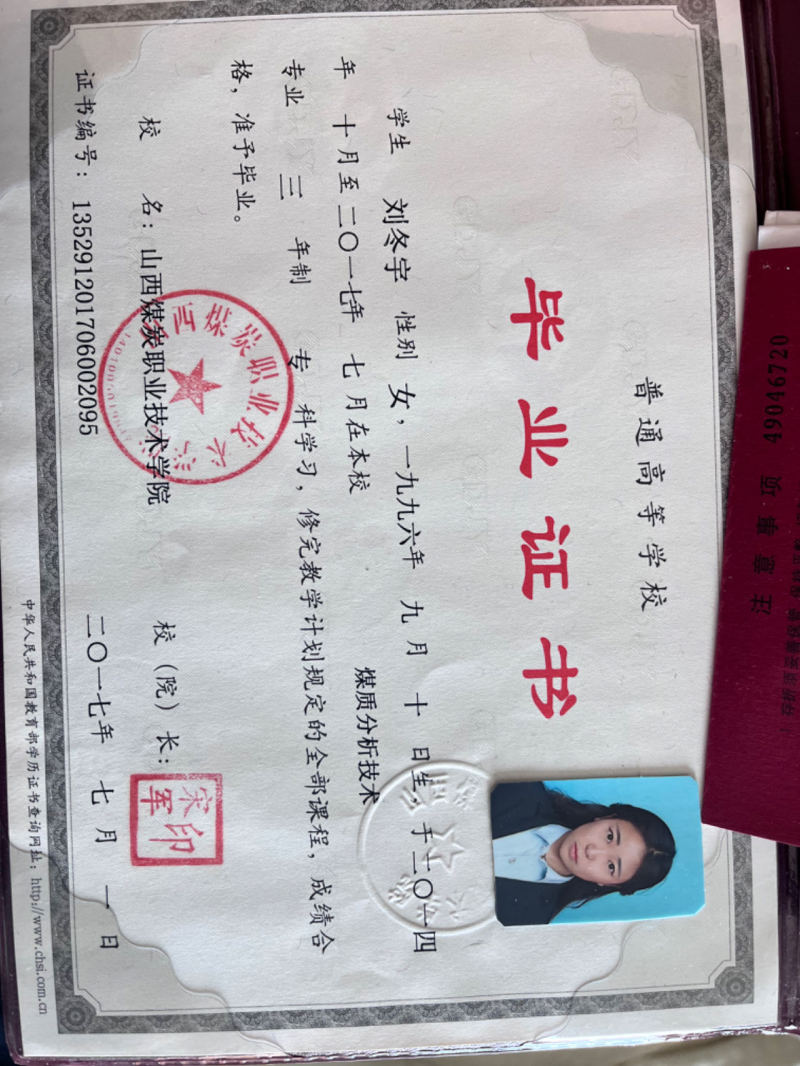 普通高等学校
毕业证书
学生 刘冬宇 性别 女，一九九六年 九 月 十 日生 于二〇一四
年 十 月至 二〇一七年 七 月在本校 煤质分析技术
专业 三 年制 专 科学习，修完教学计划规定的全部课程，成绩合
格，准予毕业。
校 名：山西煤炭职业技术学院 校（院）长：
宋军印
证书编号：135291201706002095 二〇一七年 七 月 一 日
中华人民共和国教育部学历证书查询网址：http://www.chsi.com.cn
注意事项
49046720